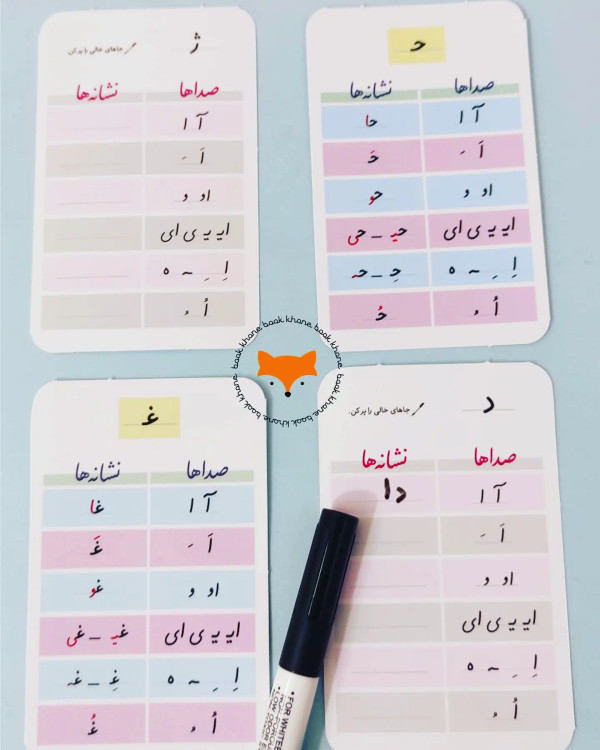 ژ
جاهای خالی را پر کن.
صداها نشانه‌ها
آ ا
اَ ـَ
او و
ایـ یـ ی ای
اِ ـِ ـه ه
اُ ـُ
حـ
صداها نشانه‌ها
آ ا حا
اَ ـَ حَ
او و حو
ایـ یـ ی ای حیـ ـ حی
اِ ـِ ـه ه حِـ ـ حه
اُ ـُ حُ
book khane. book khane. book khane. book khane. book khane. book khane.
غـ
صداها نشانه‌ها
آ ا غا
اَ ـَ غَ
او و غو
ایـ یـ ی ای غیـ ـ غی
اِ ـِ ـه ه غِـ ـ غه
اُ ـُ غُ
د
جاهای خالی را پر کن.
صداها نشانه‌ها
آ ا دا
اَ ـَ
او و
ایـ یـ ی ای
اِ ـِ ـه ه
اُ ـُ
•FOR WHITE
•LOW ODOR